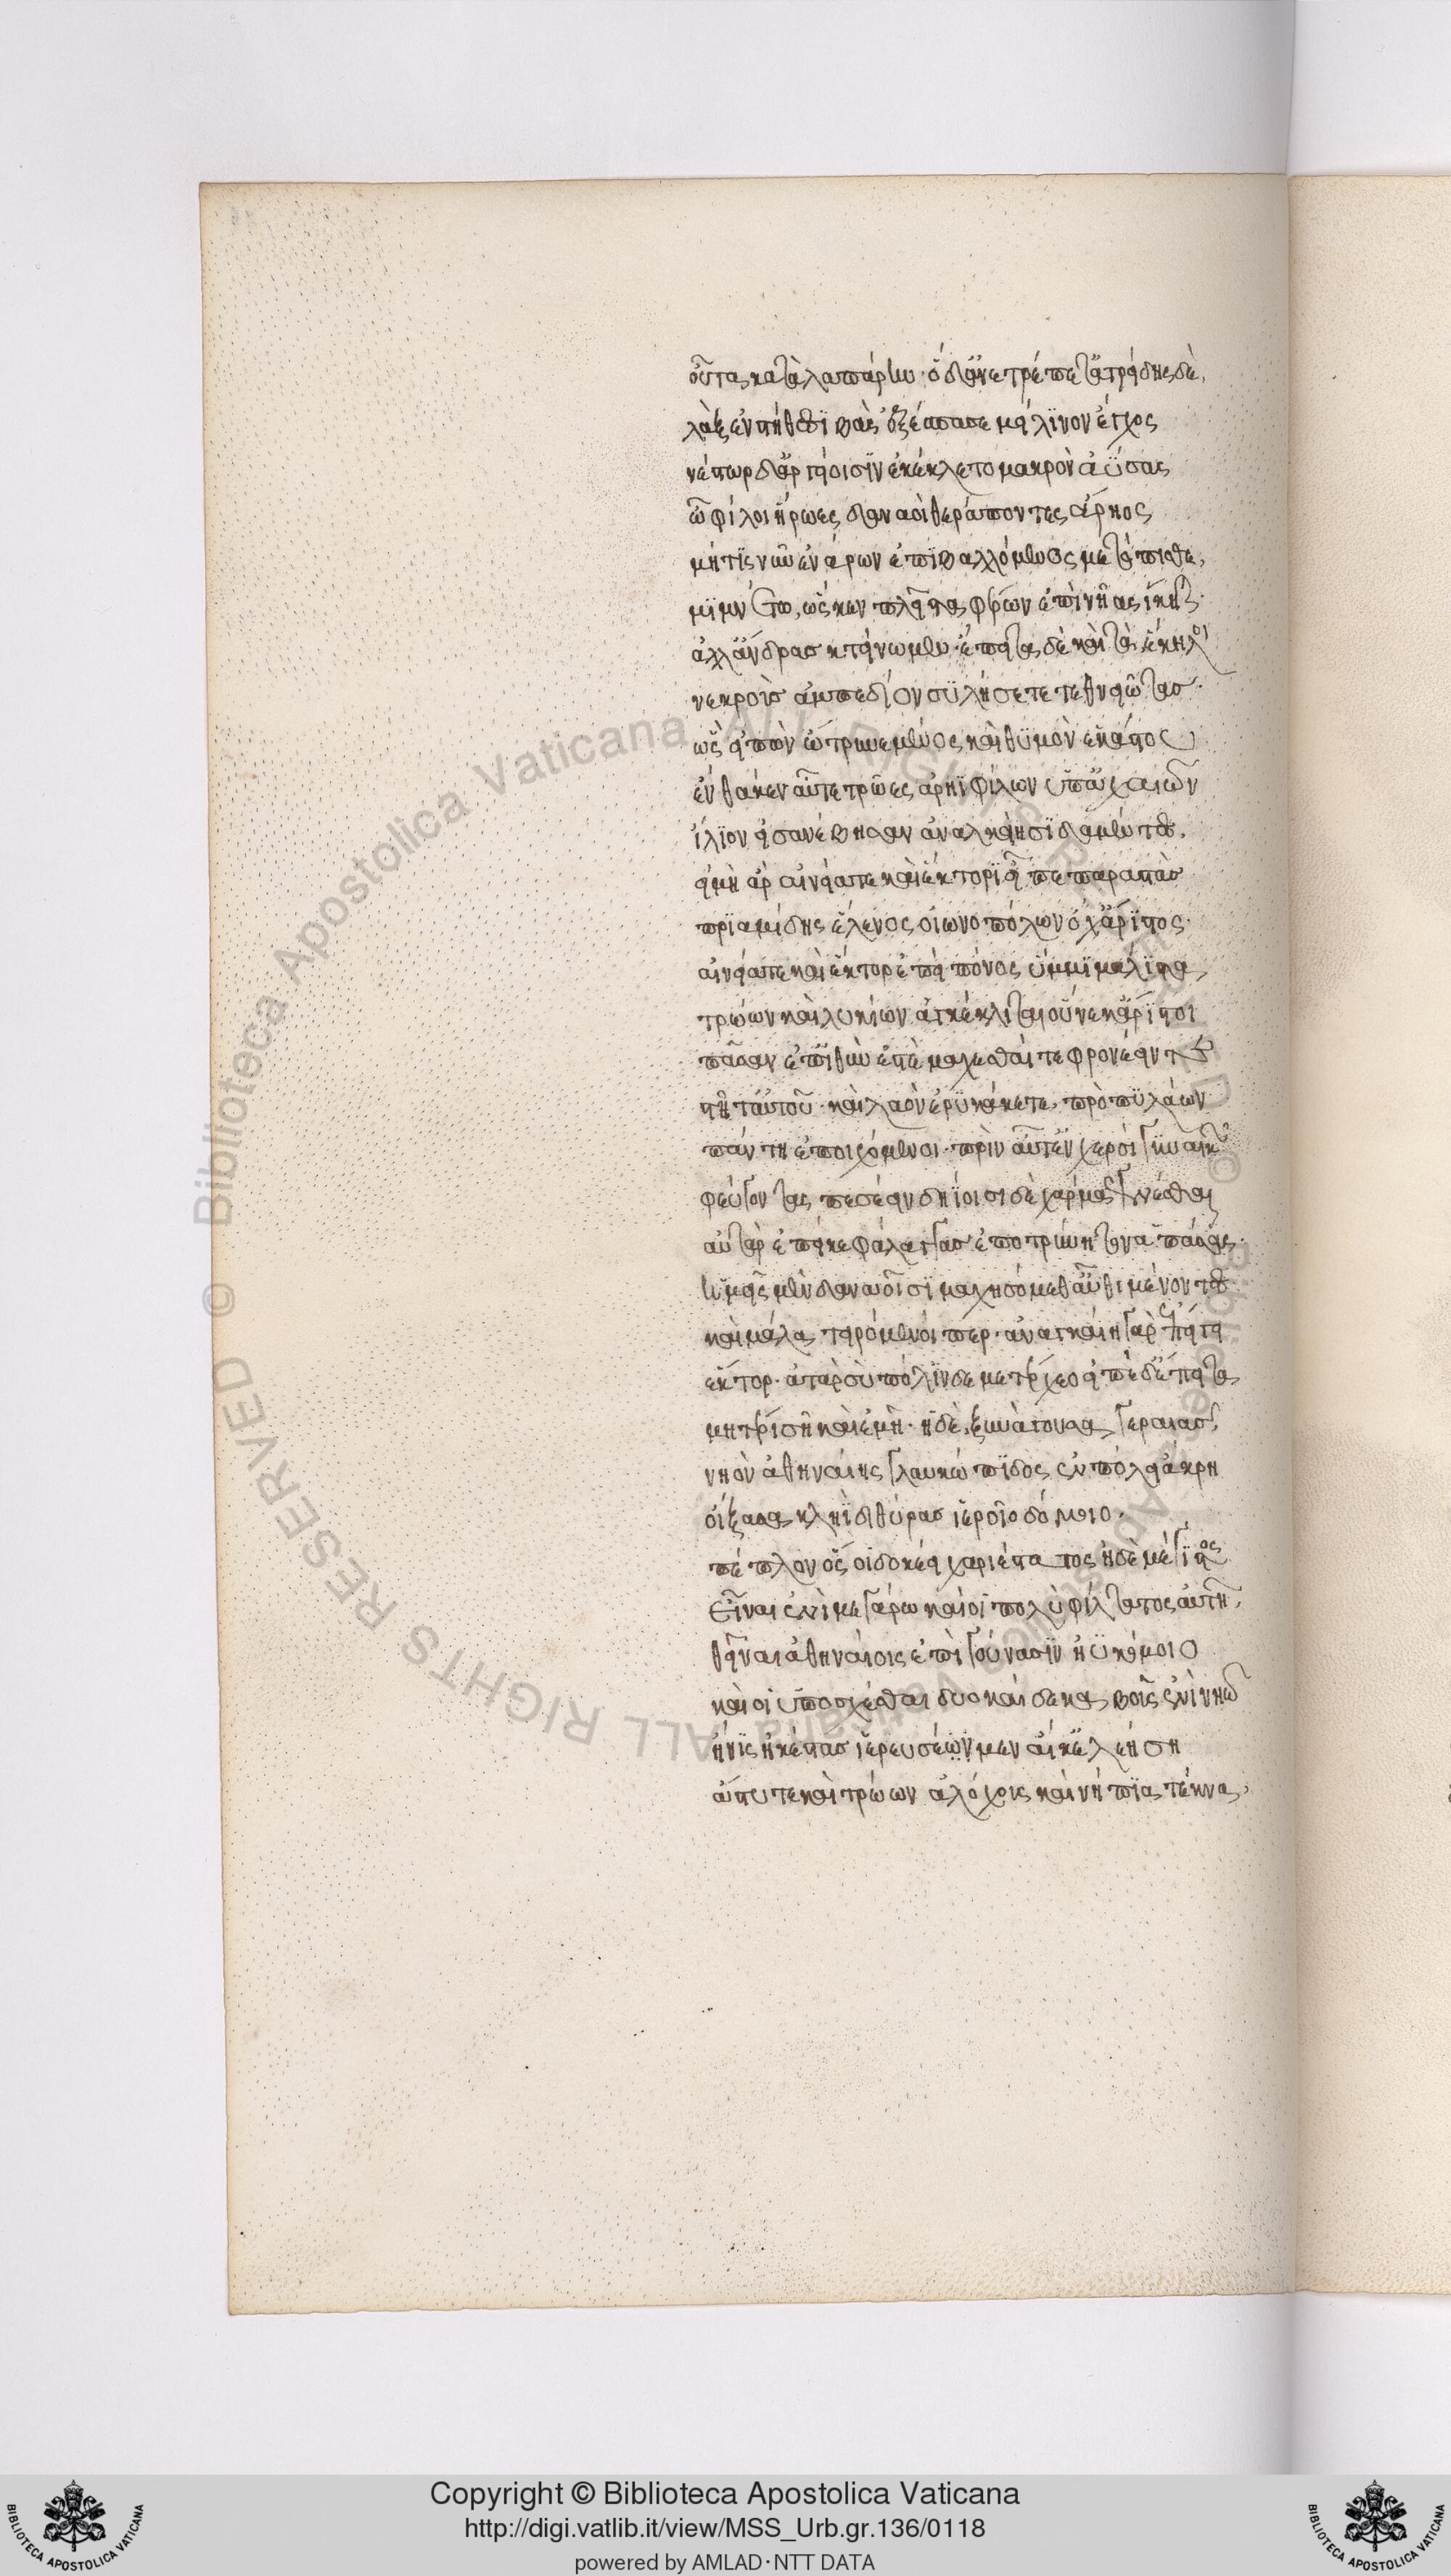 οὖτα κατὰ λαπάρην· ὁ δ' ἀνετράπετ' ἀτρείδης δὲ,
λὰξ ἐν στήθεσι βὰς ἐξέσπασε μείλινον ἔγχος
νέστωρ δ' ἀργείοισιν ἐκέκλετο μακρὸν ἀΰσας
ὦ φίλοι ἥρωες δαναοὶ θεράποντες ἄρηος
μήτις νῦν ἐνάρων ἐπιβαλλόμενος μετόπισθε,
μιμνέτω, ὥς κεν πλεῖστα φέρων ἐπὶ νῆας ἵκηται·
ἀλλ' ἄνδρας κτείνωμεν· ἔπειτα δὲ καὶ τὰ ἕκηλοι
νεκροὺς ἀμπεδίον συλήσετε τεθνειῶτας·
ὣς εἰπὼν ὤτρυνε μένος καὶ θυμὸν ἑκάστου
ἔνθά κεν αὖτε τρῶες ἀρηϊφίλων ὑπ' ἀχαιῶν
ἴλιον εἰσανέβησαν ἀναλκείησι δαμέντες,
εἰ μὴ ἄρ' αἰνεία τε καὶ ἕκτορι εἶπε παραστὰς
πριαμίδης ἕλενος οἰωνοπόλων ὄχ' ἄριστος·
αἰνεία τε καὶ ἕκτορ ἐπεὶ πόνος ὔμμι μάλιστα
τρώων καὶ λυκίων ἐγκέκλιται οὕνεκ' ἄριστοι
πᾶσαν ἐπ' ἰθὺν ἐστὲ μάχεσθαί τε φρονέειν τε
στῆτ' αὐτοῦ· καὶ λαὸν ἐρυκάκετε, πρὸ πυλάων
πάντη ἐποιχόμενοι· πρὶν αὖτ' ἐν χερσὶ γυναικῶν
φεύγοντας πεσέειν δηΐοισι δὲ χάρμα γενέσθαι
αὐτὰρ ἐπεί κε φάλαγγας ἐποτρύνητον ἁπάσας·
ἡμεῖς μὲν δαναοῖσι μαχησόμεθ' αὖθι μένοντες
καὶ μάλα τειρόμενοί περ· ἀναγκαίη γὰρ ἐπείγει
ἕκτορ· ἀτὰρ σὺ πόλινδε μετέρχεο εἰπὲ δ' ἔπειτα
μητέρι σῆ καὶ ἐμῆ· ἡ δὲ ξυνάγουσα γεραιὰς
νηὸν ἀθηναίης γλαυκώπιδος ἐν πόλει ἄκρη
οἴξασα κληΐδι θύρας ἱεροῖο δόμοιο.
πέπλον ὅς οἱ δοκέει χαριέστατος ἠδὲ μέγιστος
εἶναι ἐνὶ μεγάρω καί οἱ πολὺ φίλτατος αὐτῆ,
θεῖναι ἀθηναίης ἐπὶ γούνασιν ἠϋκόμοιο
καί οἱ ὑποσχέσθαι δυοκαίδεκα βοῦς ἐνὶ νηῶ
ἤνις ἠκέστας ἱερευσέμεν αἴ κ' ἐλεήση
ἄστυ τε καὶ τρώων ἀλόχους καὶ νήπια τέκνα,
Copyright © Biblioteca Apostolica Vaticana
http://digi.vatlib.it/view/MSS_Urb.gr.136/0118
powered by AMLAD·NTT DATA